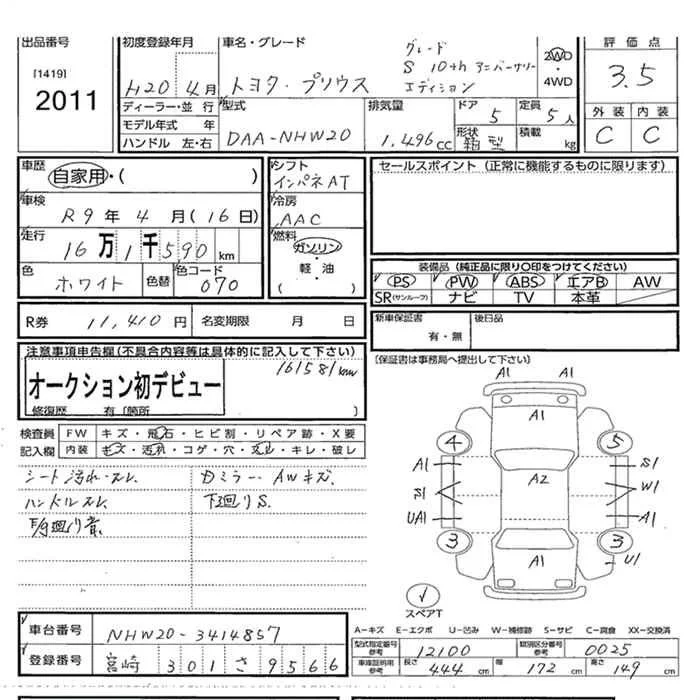 出品番号
[1419]
2011
初度登録年月
H20 4月
ディーラー・並 行
モデル年式 年
ハンドル 左・右
車名・グレード
トヨタ・プリウス
グレード
S 10th アニバーサリー
エディション
2WD
・
4WD
型式
DAA-NHW20
排気量
1,496cc
ドア
5
定員
5人
形状
箱型
積載
kg
評価点
3.5
外装 内装
C C
車歴
自家用・( )
車検
R9年 4月(16日)
走行
16万1千590km
色
ホワイト
色替
色コード
070
シフト
インパネAT
冷房
AAC
燃料
ガソリン
軽・油
( )
セールスポイント (正常に機能するものに限ります)
装備品 (純正品に限り○印をつけてください)
PS PW ABS エアB AW
SR(サンルーフ) ナビ TV 本革
R券 11,410円 名変期限 月 日
新車保証書
有・無
後日品
(保証書は事務局へ提出して下さい)
注意事項申告欄(不具合内容等は具体的に記入して下さい)
161581km
オークション初デビュー
修復歴 有〔箇所 〕
検査員 FW キズ・飛石・ヒビ割・リペア跡・X要
記入欄 内装 キズ・汚れ・コゲ・穴・スレ・キレ・破レ
シート汚れ・スレ
ハンドルスレ
Dミラー・AWキズ
下廻りS.
A1 A1
A1
4 5
A1 A2 S1
W1
UA1 A1
3 3
A1 U1
スペアT
A-キズ E-エクボ U-凹み W-補修跡 S-サビ C-腐食 XX-交換済
車台番号 NHW20-3414857
登録番号 宮崎 301 さ 9566
型式指定番号
参考
12100
類別区分番号
参考
0025
車庫証明用
参考
長さ 444cm 幅 172cm 高さ 149cm